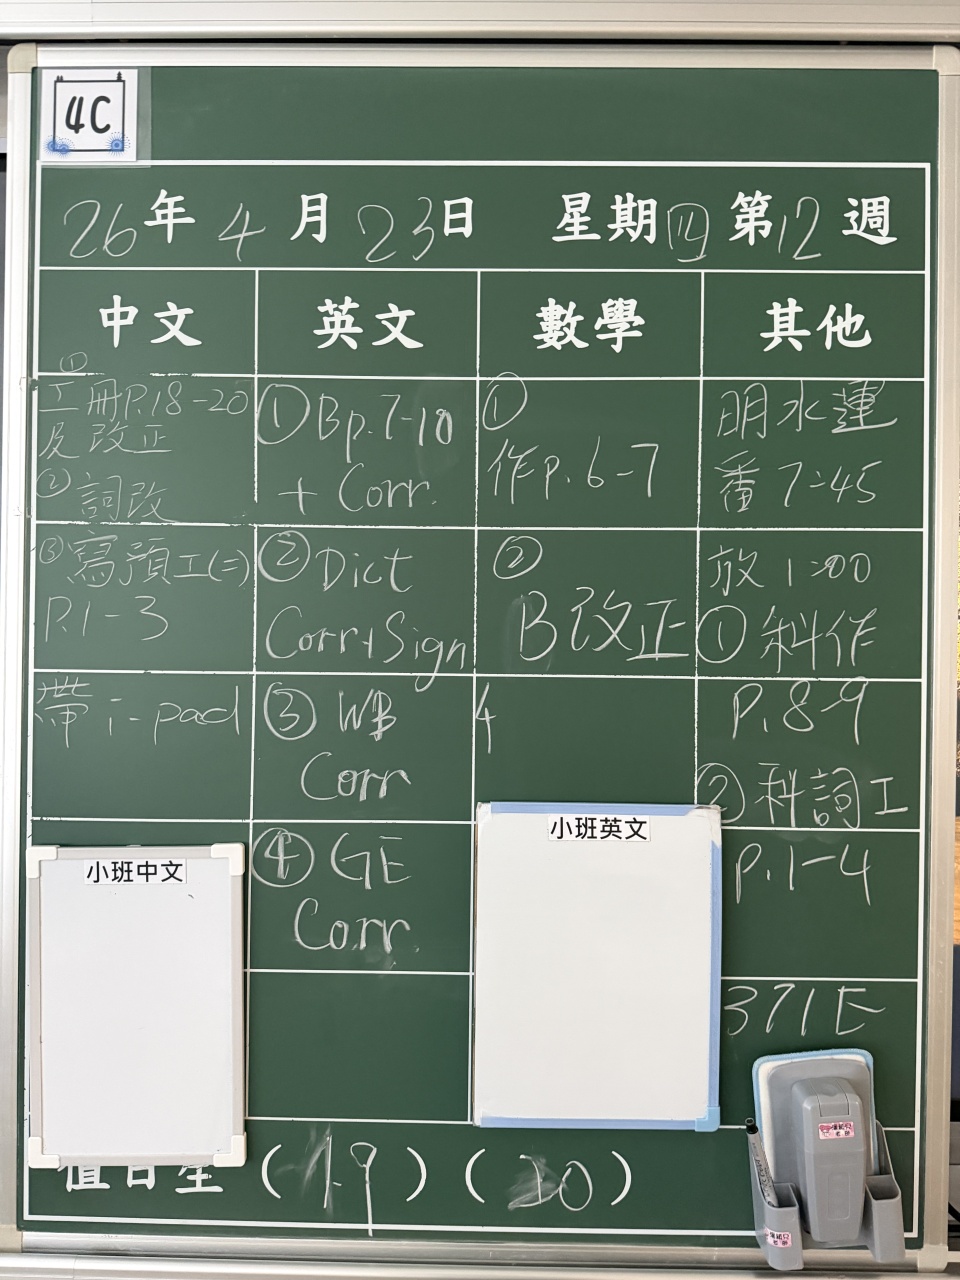 4C
26年4月23日 星期四 第12週
中文
①
工冊P.18-20
及改正
② 詞改
③ 寫預工(二)
P.1-3
帶i-pad
小班中文
英文
① Bp.7-10
+ Corr.
② Dict
Corr+Sign
③ WB
Corr
④ GE
Corr.
數學
①
作P.6-7
②
B改正
4
小班英文
其他
明水運
番7:45
放1:00
① 科作
P.8-9
② 科詞工
P.1-4
371E
值日生 (19) (20)